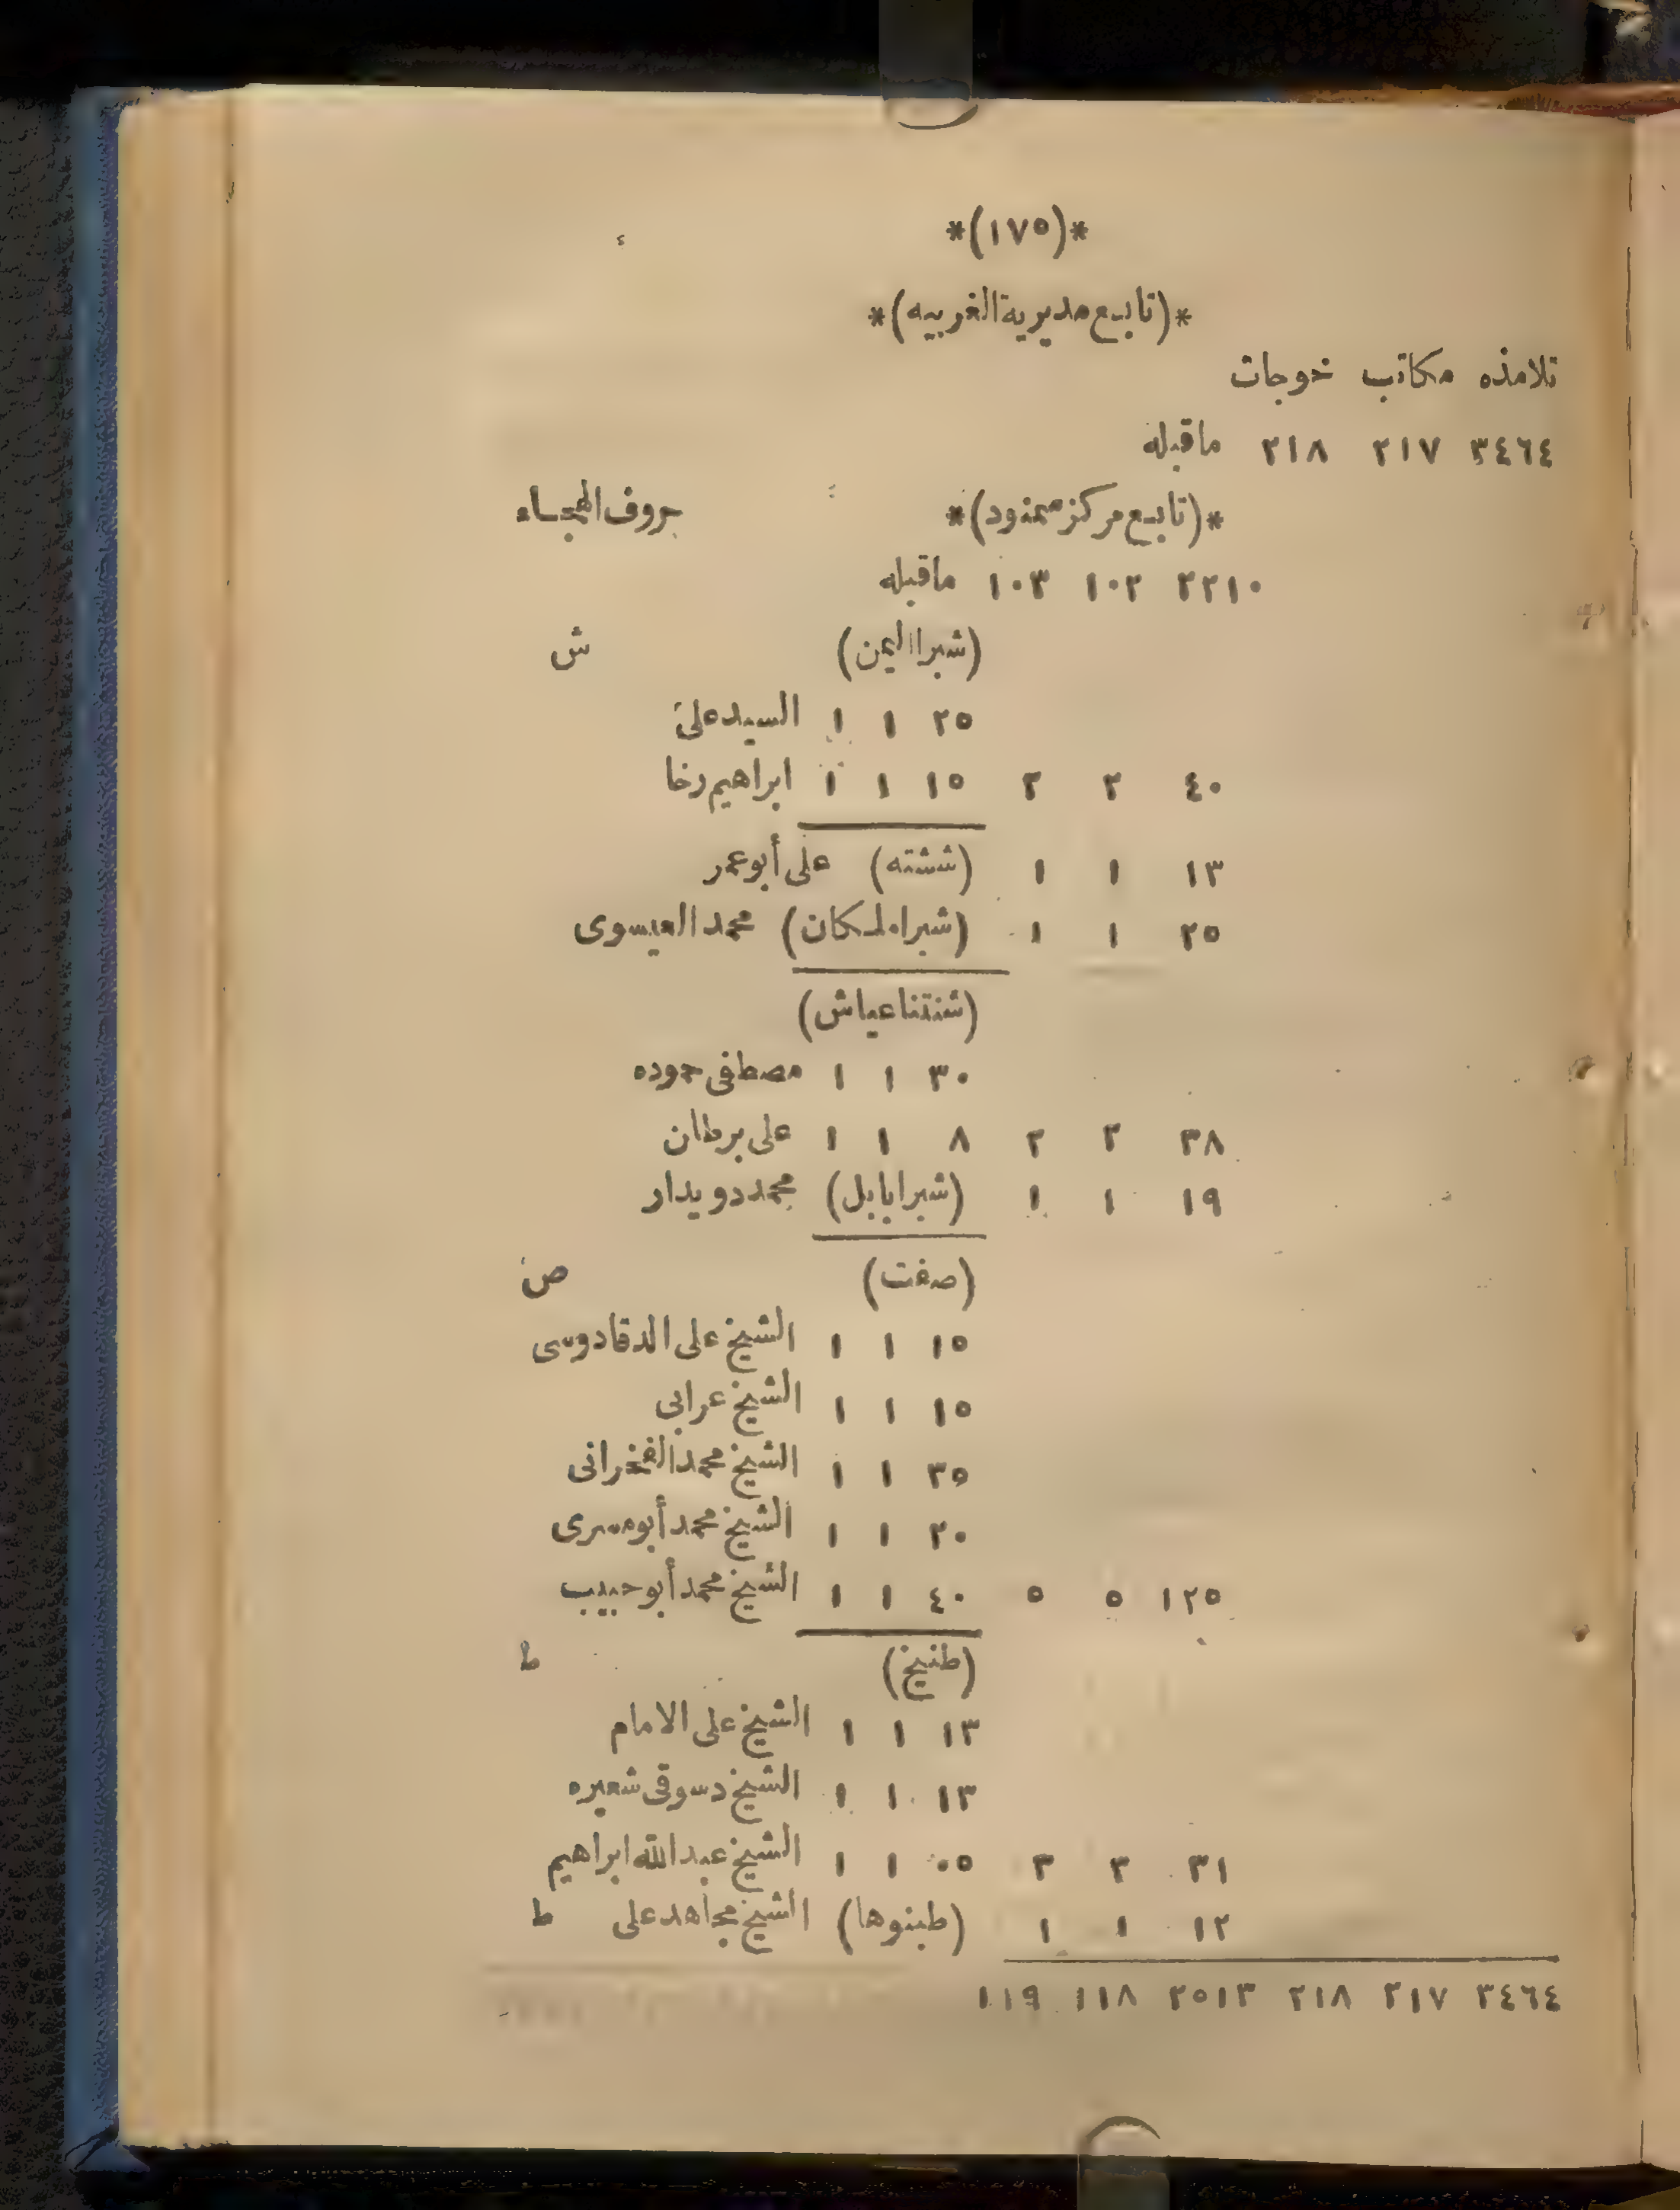 *(١٧٥)*
*(تابع مديرية الغربيه)*
تلامذه مكاتب خوجات
٣٤٦٤ ٢١٧ ٢١٨ ماقبله
*(تابع مركز سمنود)* حروف الهجاء
٢٢١٠ ١٠٢ ١٠٣ ماقبله
(شبرا اليمن) ش
٢٥ ١ ١ السيد على
٤٠ ٢ ٢ ١٥ ١ ١ ابراهيم رخا
١٣ ١ ١ (ششته) على أبو عمر
٢٥ ١ ١ (شبراملكان) محمد العيسوى
(شنتنا عياش)
٣٠ ١ ١ مصطفى حموده
٣٨ ٢ ٢ ٨ ١ ١ على برطان
١٩ ١ ١ (شبرا بابل) محمد دويدار
(صفت) ص
١٥ ١ ١ الشيخ على الدقادوسى
١٥ ١ ١ الشيخ عرابى
٣٥ ١ ١ الشيخ محمد الفخرانى
٢٠ ١ ١ الشيخ محمد أبو مسرى
١٢٥ ٥ ٥ ٤٠ ١ ١ الشيخ محمد أبو حبيب
(طنيخ) ط
١٣ ١ ١ الشيخ على الامام
١٣ ١ ١ الشيخ دسوقى شعيره
٣١ ٣ ٣ ٠٥ ١ ١ الشيخ عبد الله ابراهيم
١٢ ١ ١ (طبنوها) الشيخ مجاهد على ط
٣٤٦٤ ٢١٧ ٢١٨ ٢٥١٣ ١١٨ ١١٩